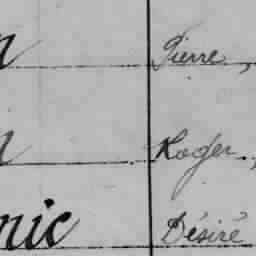 n Pierre,
n Roger.,
nic Désiré